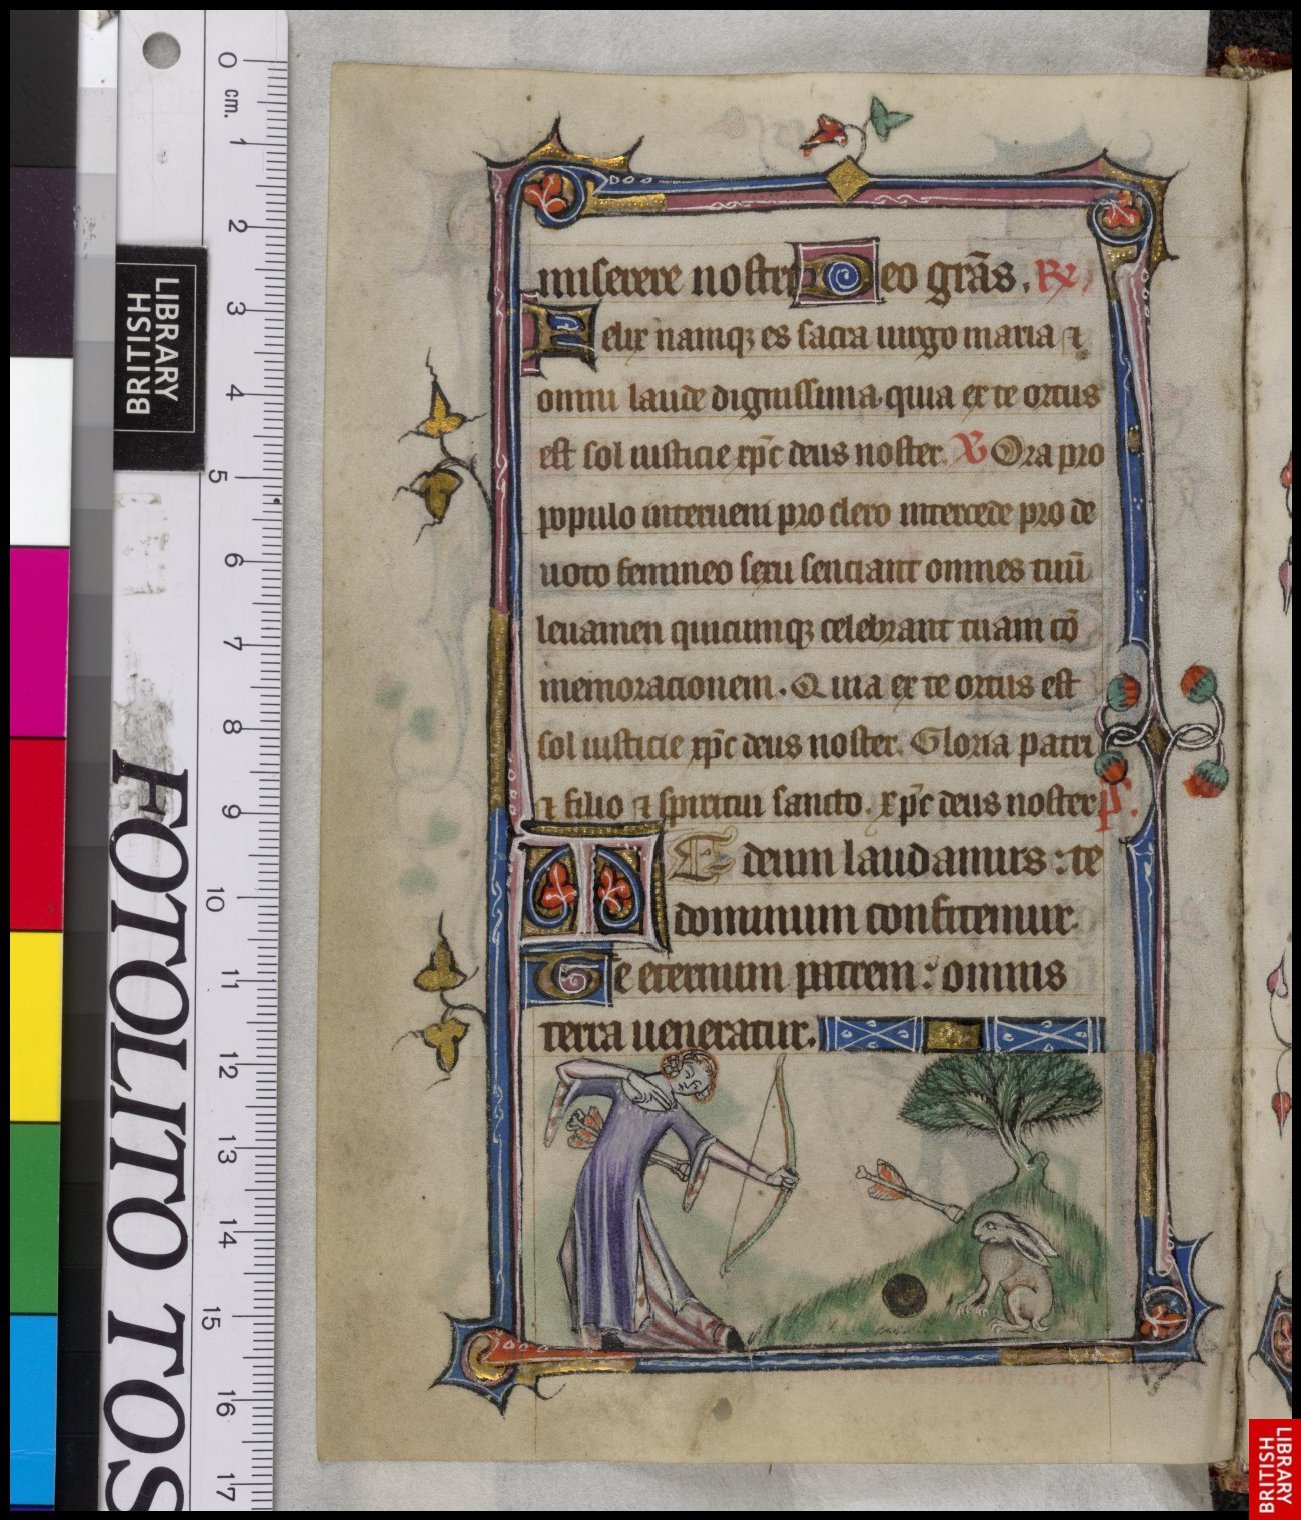 miserere nostri Deo grãs. R̃
Felix namqȝ es sacra uirgo maria ⁊
omni laude dignissima quia ex te ortus
est sol iusticie xp̃c deus noster. V̷ Ora pro
populo interueni pro clero intercede pro de
uoto femineo sexu senciant omnes tuũ
leuamen quicumqȝ celebrant tuam cõ
memoracionem. Quia ex te ortus est
sol iusticie xp̃c deus noster. Gloria patri
⁊ filio ⁊ spiritui sancto. xp̃c deus noster p̃.
TE deum laudamus : te
dominum confitemur.
Te eternum patrem : omnis
terra ueneratur.
0
cm.
1
2
3
4
5
6
7
8
9
10
11
12
13
14
15
16
17
BRITISH
LIBRARY
FOTOLITO TOS
BRITISH
LIBRARY